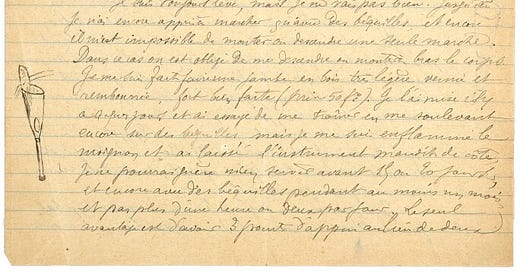 Je suis toujours levé, mais je ne vais pas bien. Jusqu'ici
je n'ai encore appris à marcher qu'avec des béquilles, et encore
il m'est impossible de monter ou descendre une seule marche.
Dans ce cas on est obligé de me descendre ou monter à bras le corps.
Je me suis fait faire une jambe en bois très légère vernie et
rembourrée, fort bien faite (prix 50 f). Je l'ai mise il y
a quelques jours et ai essayé de me traîner en me soulevant
encore sur des béquilles mais je me suis enflammé le
moignon et ai laissé l'instrument maudit de côté,
Je ne pourrai guère m'en servir avant 15 ou 20 jours,
et encore avec des béquilles pendant au moins un mois,
et pas plus d'une heure ou deux par jour. Le seul
avantage est d'avoir 3 points d'appui au lieu de deux